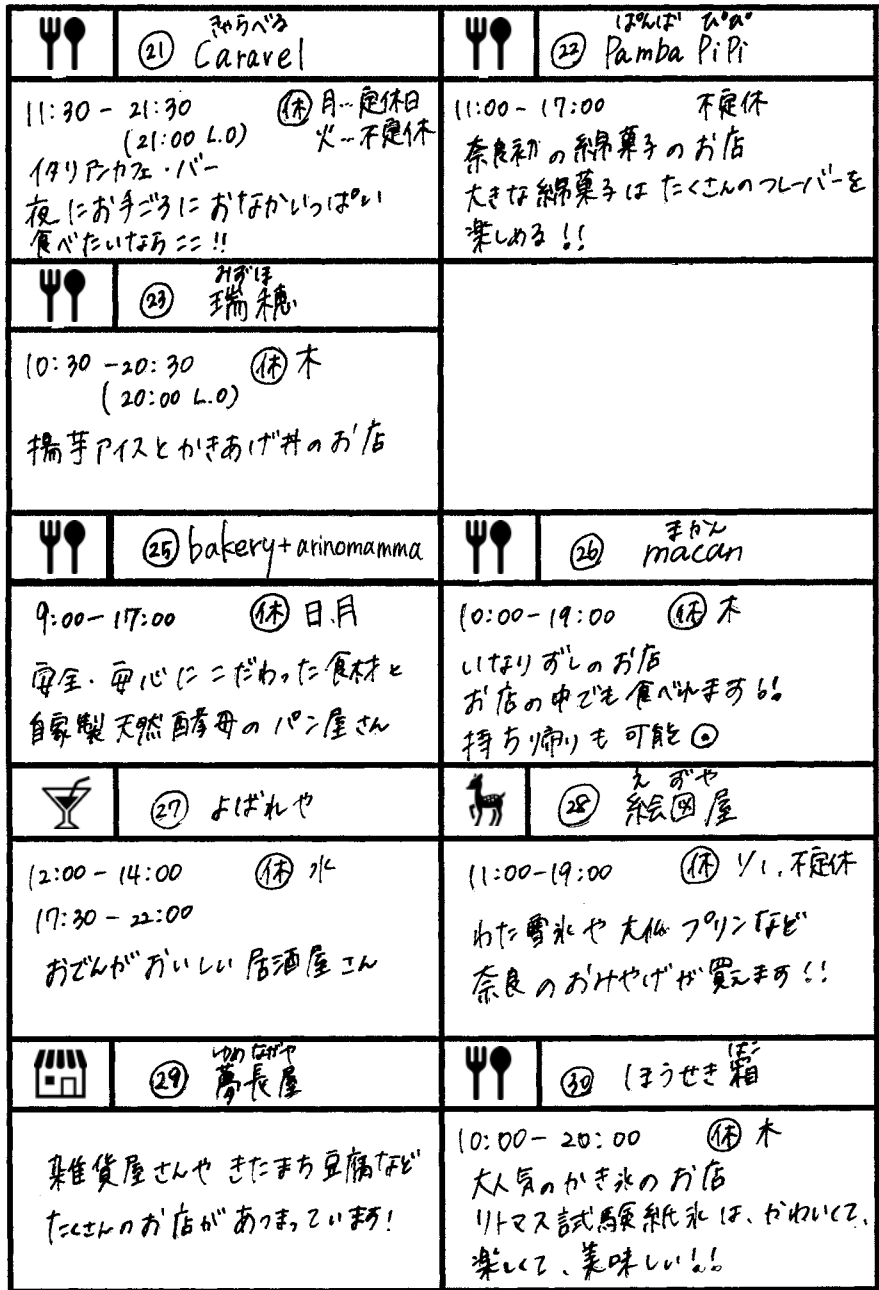 きゃらべる
㉑ Caravel
11:30 - 21:30 ㊡ 月…定休日
(21:00 L.O) 火…不定休
イタリアンカフェ・バー
夜にお手ごろにおなかいっぱい
食べたいならここ!!
ぱんば ぴぴ
㉒ Pamba PiPi
11:00 - 17:00 不定休
奈良初の綿菓子のお店
大きな綿菓子はたくさんのフレーバーを
楽しめる!!
みずほ
㉓ 瑞穂
10:30 - 20:30 ㊡ 木
(20:00 L.O)
揚芋アイスとかきあげ丼のお店
㉕ bakery+arinomamma
9:00 - 17:00 ㊡ 日、月
安全・安心にこだわった食材と
自家製天然酵母のパン屋さん
まかん
㉖ macan
10:00 - 19:00 ㊡ 木
いなりずしのお店
お店の中でも食べれます!!
持ち帰りも可能◎
㉗ よばれや
12:00 - 14:00 ㊡ 水
17:30 - 22:00
おでんがおいしい居酒屋さん
えずや
㉘ 絵図屋
11:00 - 19:00 ㊡ 1/1、不定休
わた雪氷や大仏プリンなど
奈良のおみやげが買えます!!
ゆめながや
㉙ 夢長屋
雑貨屋さんやきたまち豆腐など
たくさんのお店があつまっています!
ばこ
㉚ ほうせき箱
10:00 - 20:00 ㊡ 木
大人気のかき氷のお店
リトマス試験紙氷は、かわいくて、
楽しくて、美味しい!!